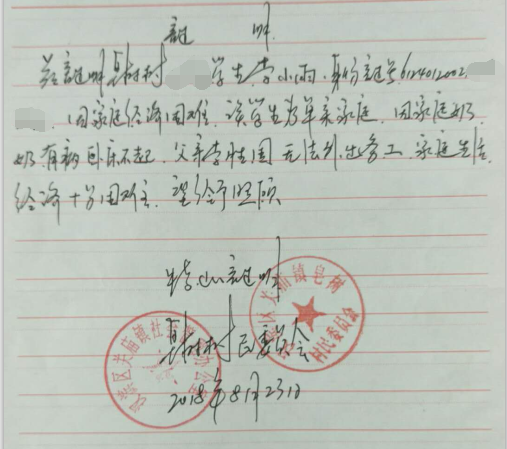 證 明
兹證明皂树村 学生李小雨,身份證号6124012002
,因家庭经济困难,该学生为单亲家庭,因家庭奶
奶有病卧床不起,父亲李胜国无法外出务工,家庭生活
经济十分困难,望给予照顾
特此證明
皂树村民委员会
2018年8月23日
区关庙镇皂树
村民委员会
区关庙镇社